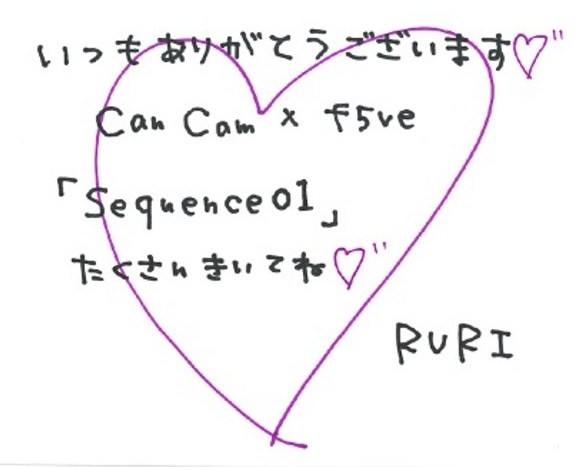 いつもありがとうございます♡"
Can Cam × f5ve
「Sequence01」
たくさんきいてね♡"
RURI